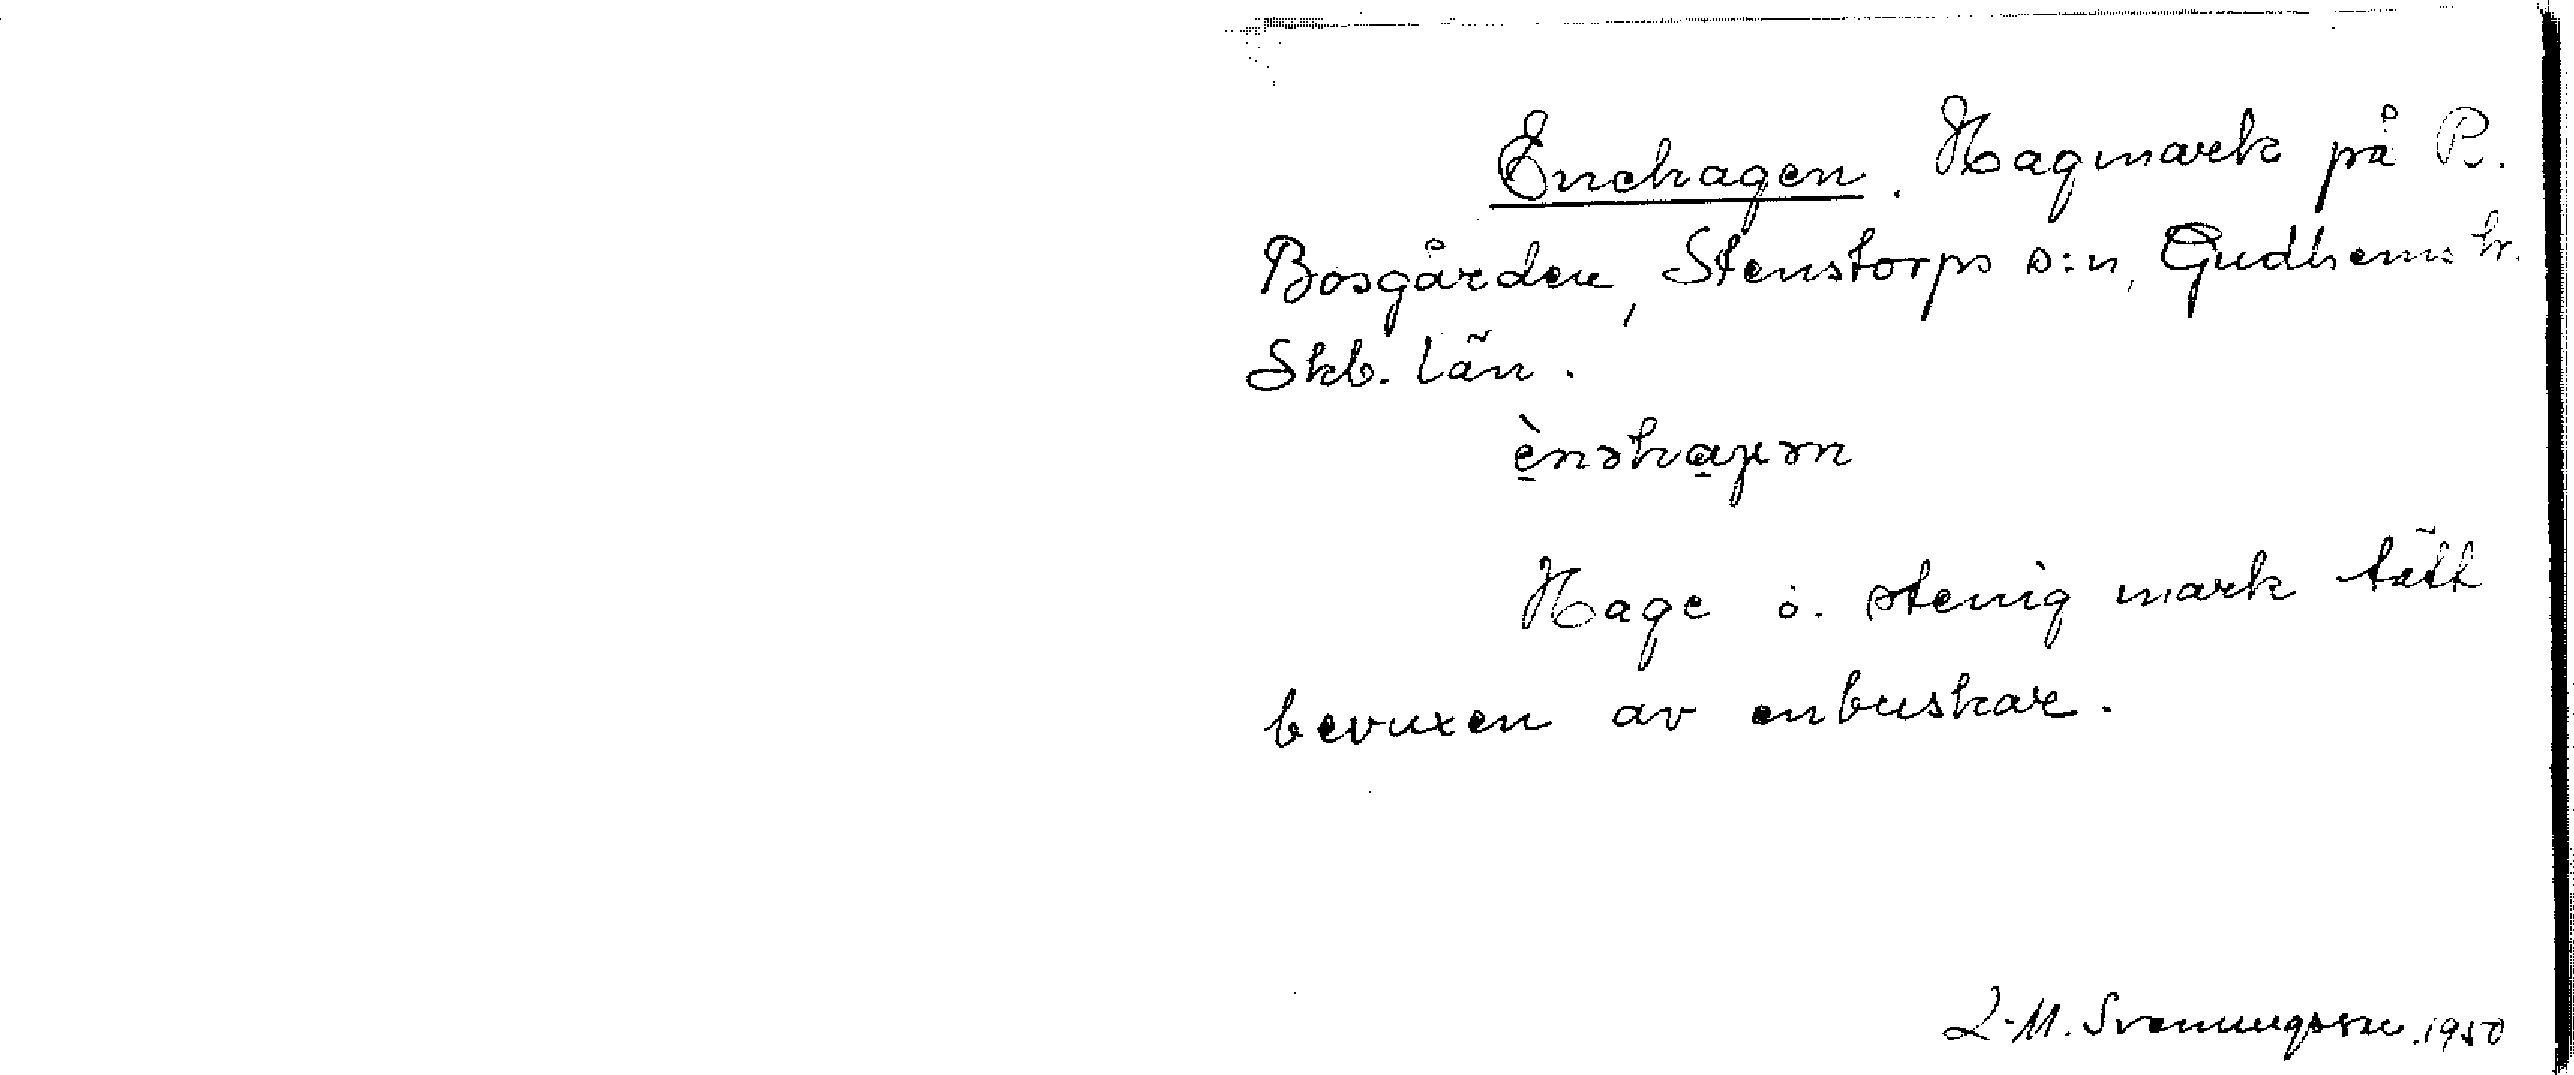 Enehagen. Hagmark på P.
Bosgården, Stenstorps s:n, Gudhems h.
Skb. län.
ènəhaɡən
Hage o. stenig mark tätt
bevuxen av enbuskar.
L-M. Svenungsson. 1950